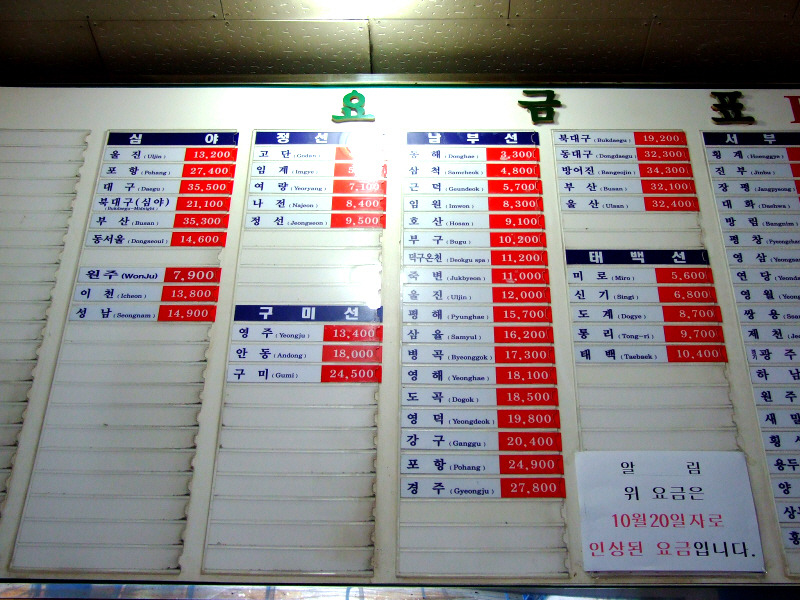 요 금 표
심 야
울 진 (Uljin) 13,200
포 항 (Pohang) 27,400
대 구 (Daegu) 35,500
북대구(심야) (Bukdaegu-Midnight) 21,100
부 산 (Busan) 35,300
동서울 (Dongseoul) 14,600
원 주 (WonJu) 7,900
이 천 (Icheon) 13,800
성 남 (Seongnam) 14,900
정 선 선
고 단 (Godan)
임 계 (Imgye)
여 량 (Yeoryang) 7,100
나 전 (Najeon) 8,400
정 선 (Jeongseon) 9,500
구 미 선
영 주 (Yeongju) 13,400
안 동 (Andong) 18,000
구 미 (Gumi) 24,500
남 부 선
동 해 (Donghae) 3,300
삼 척 (Samcheok) 4,800
근 덕 (Geundeok) 5,700
임 원 (Imwon) 8,300
호 산 (Hosan) 9,100
부 구 (Bugu) 10,200
덕구온천 (Deokgu spa) 11,200
죽 변 (Jukbyeon) 11,000
울 진 (Uljin) 12,000
평 해 (Pyunghae) 15,700
삼 율 (Samyul) 16,200
병 곡 (Byeonggok) 17,300
영 해 (Yeonghae) 18,100
도 곡 (Dogok) 18,500
영 덕 (Yeongdeok) 19,800
강 구 (Ganggu) 20,400
포 항 (Pohang) 24,900
경 주 (Gyeongju) 27,800
북대구 (Bukdaegu) 19,200
동대구 (Dongdaegu) 32,300
방어진 (Bangeojin) 34,300
부 산 (Busan) 32,100
울 산 (Ulsan) 32,400
태 백 선
미 로 (Miro) 5,600
신 기 (Singi) 6,800
도 계 (Dogye) 8,700
통 리 (Tong-ri) 9,700
태 백 (Taebaek) 10,400
알 림
위 요금은
10월20일자로
인상된 요금입니다.
서 부
횡 계 (Hoenggye)
진 부 (Jinbu)
장 평 (Jangpyeong)
대 화 (Daehwa)
방 림 (Bangnim)
평 창
영 삼
연 당
영 월
쌍 용
제 천
광 주
하 남
원 주
새 말
횡 성
용두
양
홍